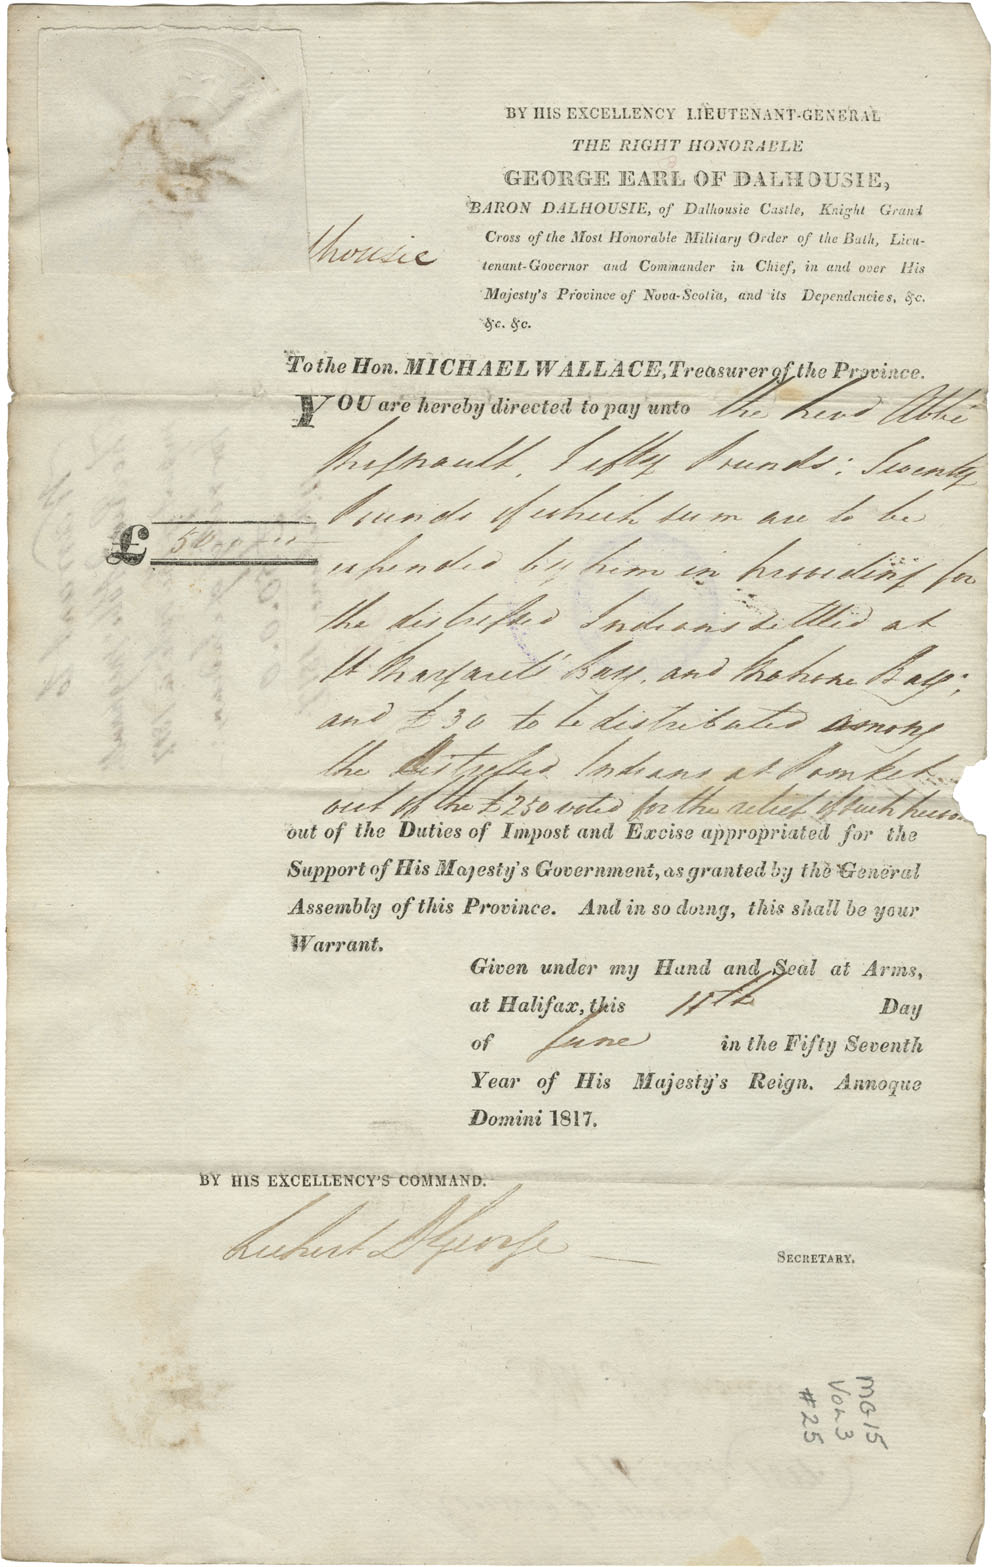 BY HIS EXCELLENCY LIEUTENANT-GENERAL
THE RIGHT HONORABLE
GEORGE EARL OF DALHOUSIE,
BARON DALHOUSIE, of Dalhousie Castle, Knight Grand
Cross of the Most Honorable Military Order of the Bath, Lieu-
tenant-Governor and Commander in Chief, in and over His
Majesty's Province of Nova-Scotia, and its Dependencies, &c.
&c. &c.
lhousie
To the Hon. MICHAEL WALLACE, Treasurer of the Province.
YOU are hereby directed to pay unto the Revd Abbé
Fifty Pounds; Twenty
Pounds of which sum are to be
£ 50
expended by him in providing for
the distressed Indians settled at
St Margarets Bay, and Mahone Bay;
and £30 to be distributed among
the Distressed Indians at Pomket
out of the £250 voted for the relief of such
out of the Duties of Impost and Excise appropriated for the
Support of His Majesty's Government, as granted by the General
Assembly of this Province. And in so doing, this shall be your
Warrant.
Given under my Hand and Seal at Arms,
at Halifax, this 11th Day
of June in the Fifty Seventh
Year of His Majesty's Reign. Annoque
Domini 1817.
BY HIS EXCELLENCY'S COMMAND.
George
SECRETARY.
MG 15
Vol 3
#25